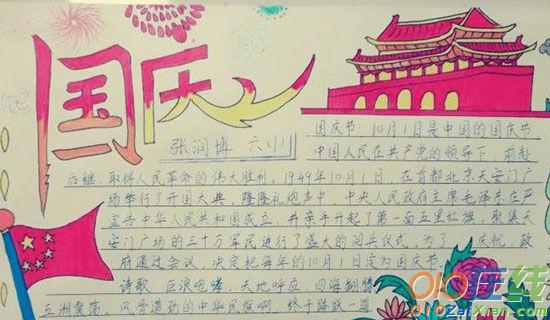 国庆
张润博 六(1)
国庆节 10月1日是中国的国庆节,
中国人民在共产党的领导下, 前赴
后继, 取得人民革命的伟大胜利, 1949年10月1日, 在首都北京天安门广
场举行了开国大典, 隆隆礼炮声中, 中央人民政府主席毛泽东庄严
宣告中华人民共和国成立, 并亲手升起了第一面五星红旗, 聚集天
安门广场的三十万军民进行了盛大的阅兵仪式, 为了 庆祝, 政
府通过会议, 决定把每年的10月1日定为国庆节
诗歌 巨浪咆哮, 天地呼应 四海翻腾
五洲震荡, 风雷激动的中华民族啊 终于踏跃一道
在线
ZaiXian.com